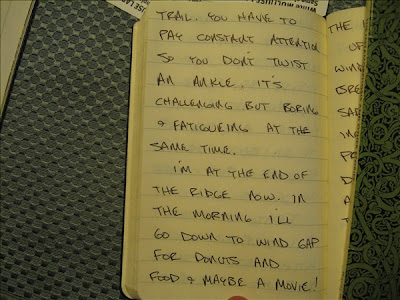 TRAIL. YOU HAVE TO
PAY CONSTANT ATTENTION
SO YOU DON'T TWIST
AN ANKLE. IT'S
CHALLENGING BUT BORING
& FATIGUEING AT THE
SAME TIME.
I'M AT THE END OF
THE RIDGE NOW. IN
THE MORNING I'LL
GO DOWN TO WIND GAP
FOR DONUTS AND
FOOD & MAYBE A MOVIE!
THE
UP
WIND